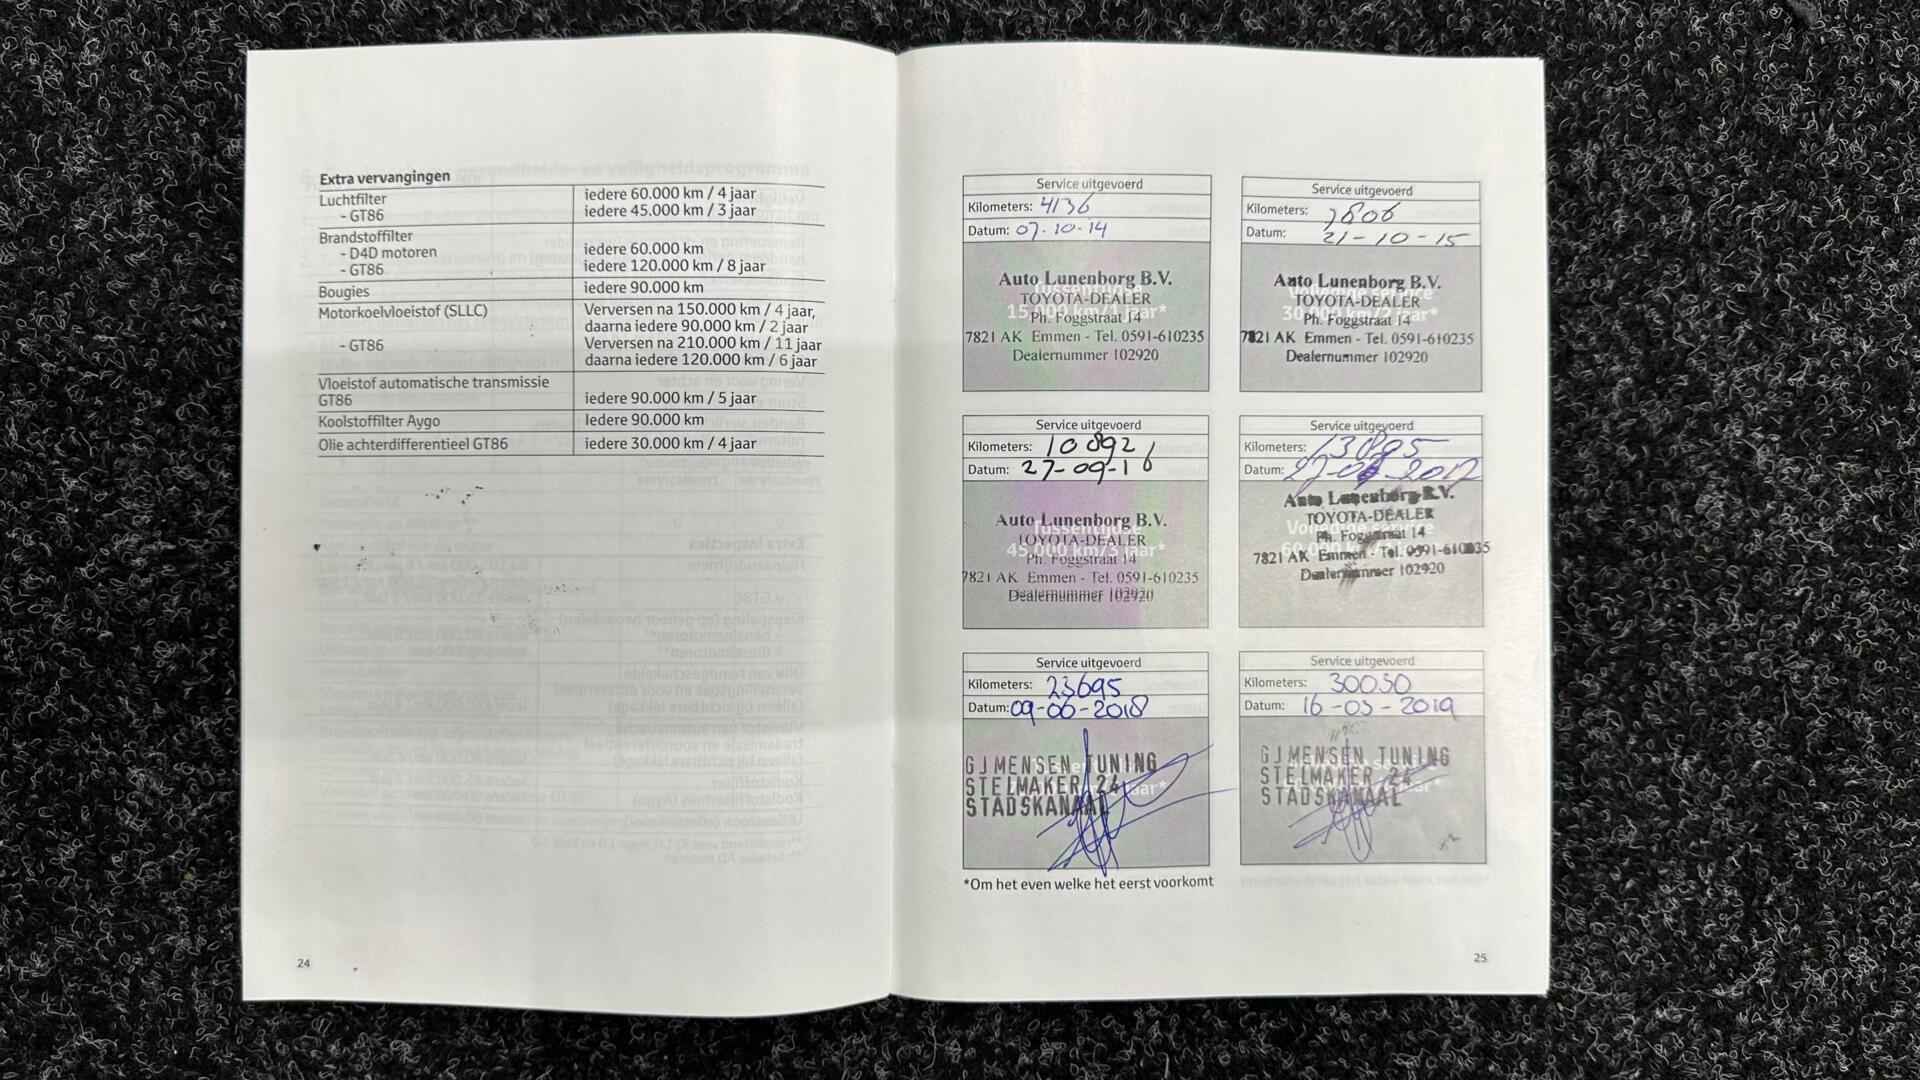 Extra vervangingen
Luchtfilter iedere 60.000 km / 4 jaar
- GT86 iedere 45.000 km / 3 jaar
Brandstoffilter
- D4D motoren iedere 60.000 km
- GT86 iedere 120.000 km / 8 jaar
Bougies iedere 90.000 km
Motorkoelvloeistof (SLLC) Verversen na 150.000 km / 4 jaar,
daarna iedere 90.000 km / 2 jaar
- GT86 Verversen na 210.000 km / 11 jaar
daarna iedere 120.000 km / 6 jaar
Vloeistof automatische transmissie
GT86 iedere 90.000 km / 5 jaar
Koolstoffilter Aygo iedere 90.000 km
Olie achterdifferentieel GT86 iedere 30.000 km / 4 jaar
24
Service uitgevoerd
Kilometers: 4136
Datum: 07-10-14
Auto Lunenborg B.V.
TOYOTA-DEALER
Ph. Foggstraat 14
15.000 km/1 jaar*
7821 AK Emmen - Tel. 0591-610235
Dealernummer 102920
Service uitgevoerd
Kilometers: 7806
Datum: 21-10-15
Auto Lunenborg B.V.
Volledige service
TOYOTA-DEALER
30.000 km/2 jaar*
Ph. Foggstraat 14
7821 AK Emmen - Tel. 0591-610235
Dealernummer 102920
Service uitgevoerd
Kilometers: 10892
Datum: 27-09-16
Auto Lunenborg B.V.
Tussentijdse
TOYOTA-DEALER
45.000 km/3 jaar*
Ph. Foggstraat 14
7821 AK Emmen - Tel. 0591-610235
Dealernummer 102920
Service uitgevoerd
Kilometers: 13895
Datum: 2017
Auto Lunenborg B.V.
TOYOTA-DEALER
Volledige service
Ph. Foggstraat 14
60.000 km
7821 AK Emmen - Tel. 0591-610235
Dealernummer 102920
Service uitgevoerd
Kilometers: 23695
Datum: 09-06-2018
GJMENSEN TUNING
STELMAKER 24
jaar*
STADSKANAAL
Service uitgevoerd
Kilometers: 30030
Datum: 16-05-2019
GJMENSEN TUNING
STELMAKER 24
STADSKANAAL
*Om het even welke het eerst voorkomt
25